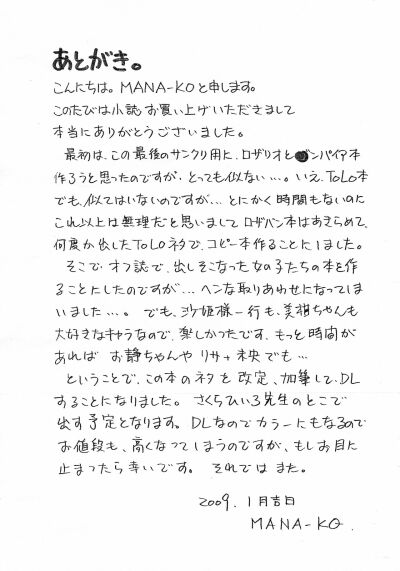 あとがき。
こんにちは。MANA-KOと申します。
このたびは小誌お買い上げいただきまして
本当にありがとうございました。
最初は、この最後のサンクリ用に、ロザリオとバンパイア本
作ろうと思ったのですが、とっても似ない…。いえ、ToLo本
でも、似てはいないのですが…とにかく時間もないのに
これ以上は無理だと思いまして ロザバン本はあきらめて、
何度か出したToLoネタで、コピー本作ることにしました。
そこで、オフ誌で、出しそこなった女の子たちの本を作
ることにしたのですが…ヘンな取りあわせになってしま
いました…。でも、沙姫様一行も、美柑ちゃんも
大好きなキャラなので、楽しかったです。もっと時間が
あれば お静ちゃんや リサ+未央でも…
ということで、この本のネタを改定、加筆して、DL
することになりました。さくらひいろ先生のとこで
出す予定となります。DLなのでカラーにもなるので
お値段も、高くなってしまうのですが、もしお目に
止まったら幸いです。それでは また。
2009. 1月吉日
MANA-KO.